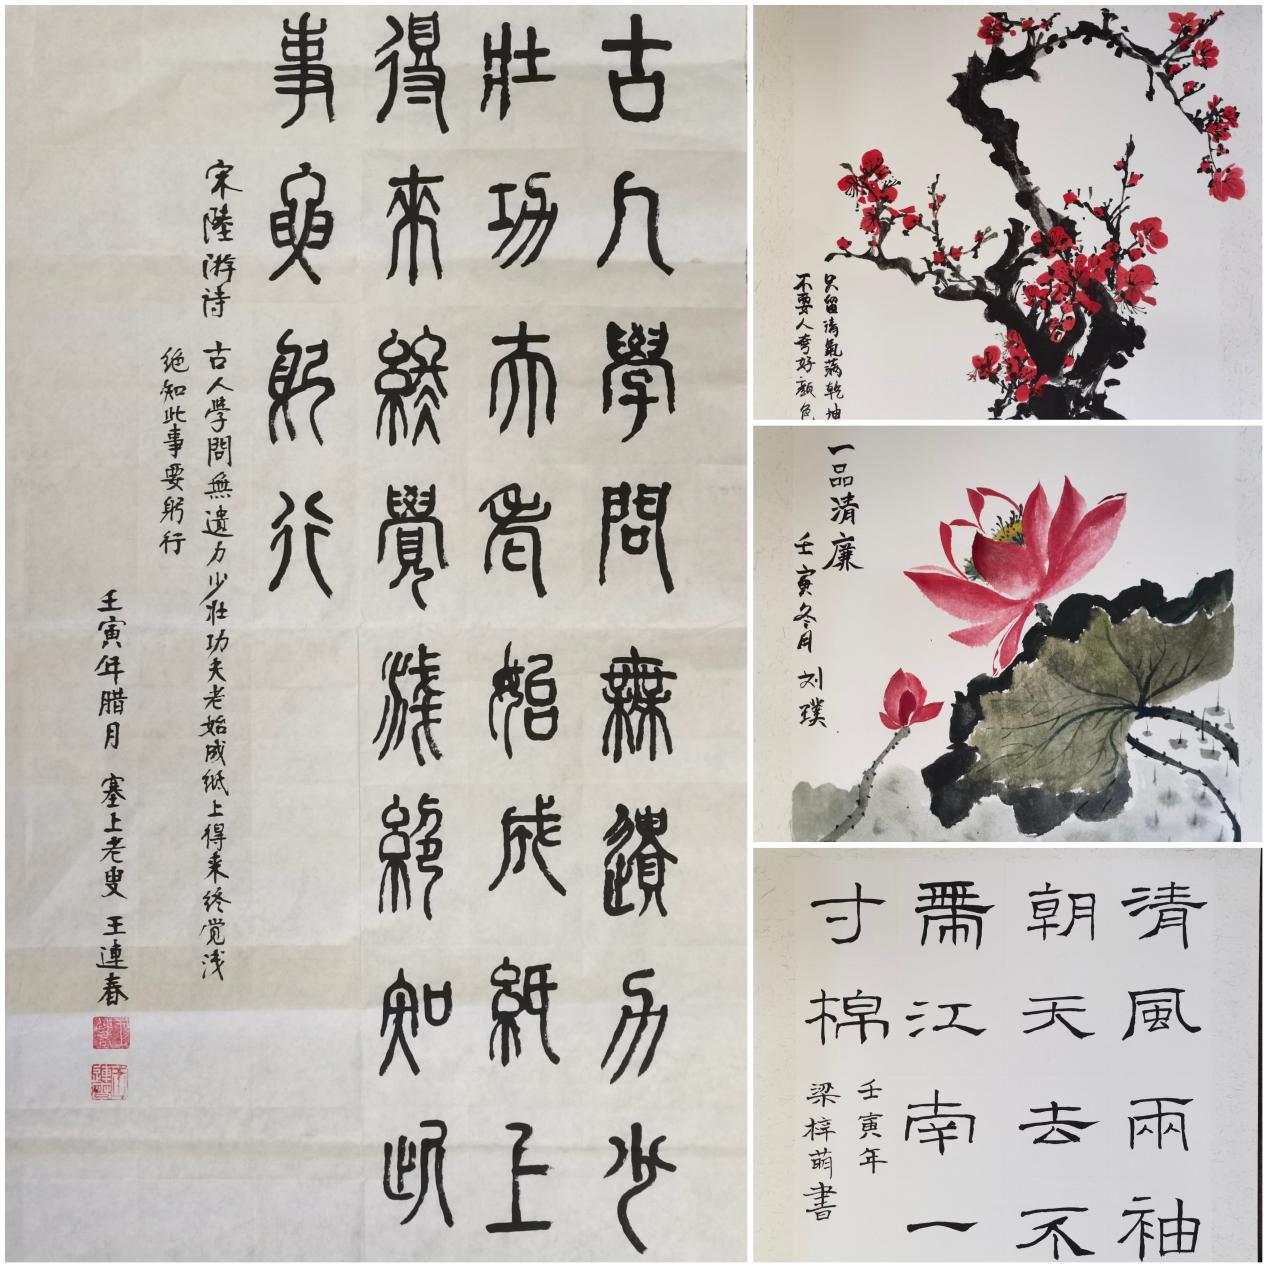 古人學問無遺力少
壯功夫老始成紙上
得来終覺淺絕知此
事要躬行
宋陸游詩 古人学問無遺力少壯功夫老始成紙上得来终觉浅
绝知此事要躬行
壬寅年腊月 塞上老叟 王連春
只留清氣滿乾坤
不要人夸好顏色
一品清廉
壬寅冬月 刘璞
清風兩袖
朝天去不
帶江南一
寸棉
壬寅年
梁梓萌書